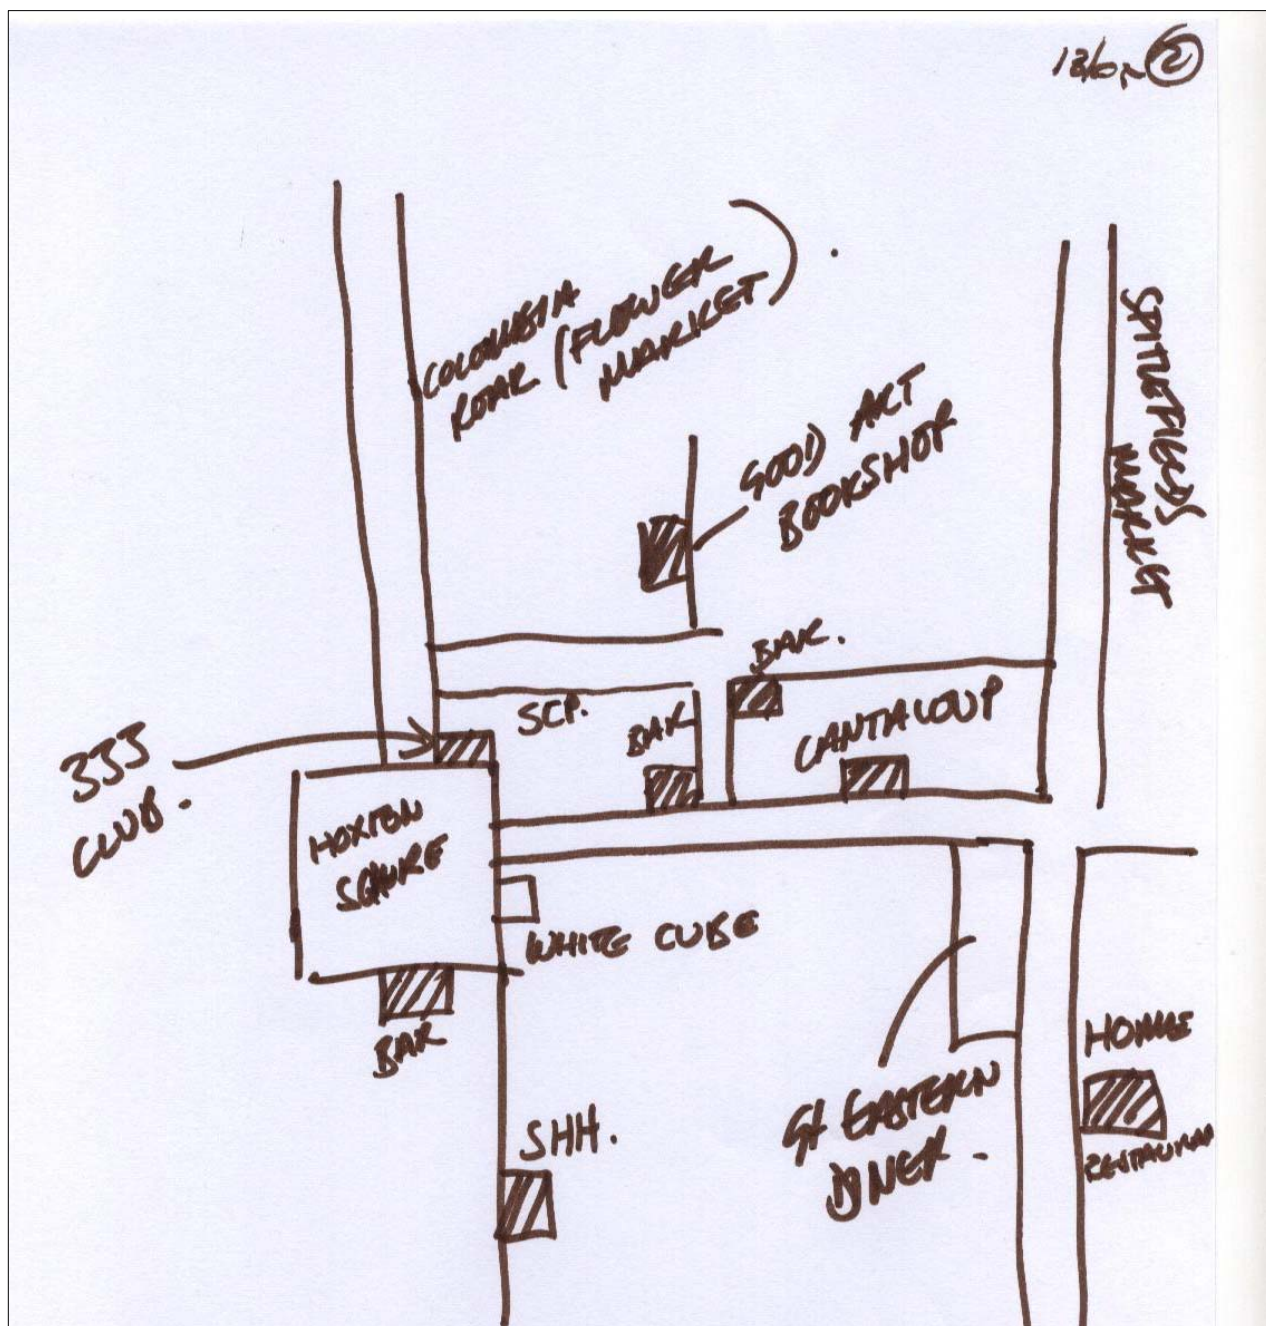 2
COLOMBIA
ROAR (FLOWER
MARKET)
SPITTLEFIELDS
MARKET
GOOD ART
BOOKSHOP
BAR.
SCP.
BAR
CANTALOUP
333
CLUB.
HOXTON
SQAURE
WHITE CUBE
BAR
HOME
RESTAURAN
Gt EASTERN
DINER.
SHH.